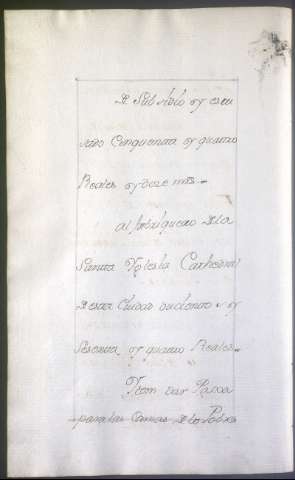 De Subsidio y escu
sado Cinquenta y quatro
Reales y doze mrs
al fabriquero De la
Santa Yglesia Cathedral
De esta Ciudad duscientos y
Sesenta y quatro Reales
Ytem dar Para
para las Camas De los Pobres